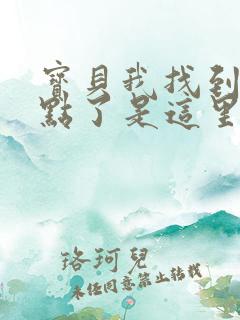 寶貝我找到
點了是這里
珞珂兒
未经同意禁止转载